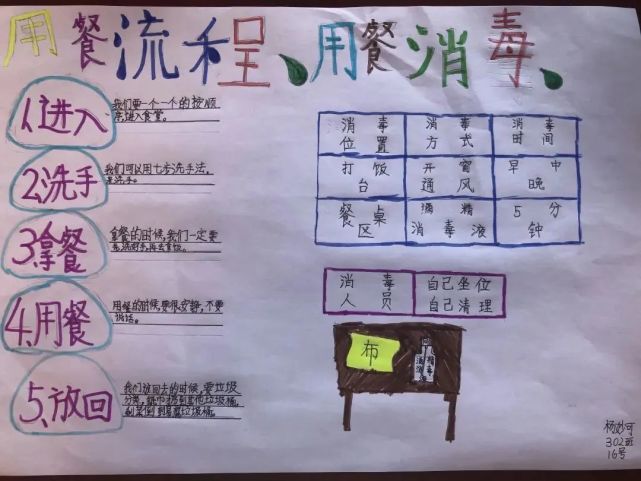 用餐流程、用餐消毒、
1.进入
我们要一个一个的按顺
序进入食堂。
2.洗手
我们可以用七步洗手法,
来洗手。
3.拿餐
拿餐的时候,我们一定要
先洗好手,再去拿饭。
4.用餐
用餐的时候,要很安静,不要
说话。
5.放回
我们放回去的时候,要垃圾
分类,
消毒位置 消毒方式 消毒时间
打饭台 开窗通风 早中晚
餐桌区 酒精消毒液 5分钟
消毒人员 自己坐位自己清理
布
酒精消毒
杨妙可
302班
16号